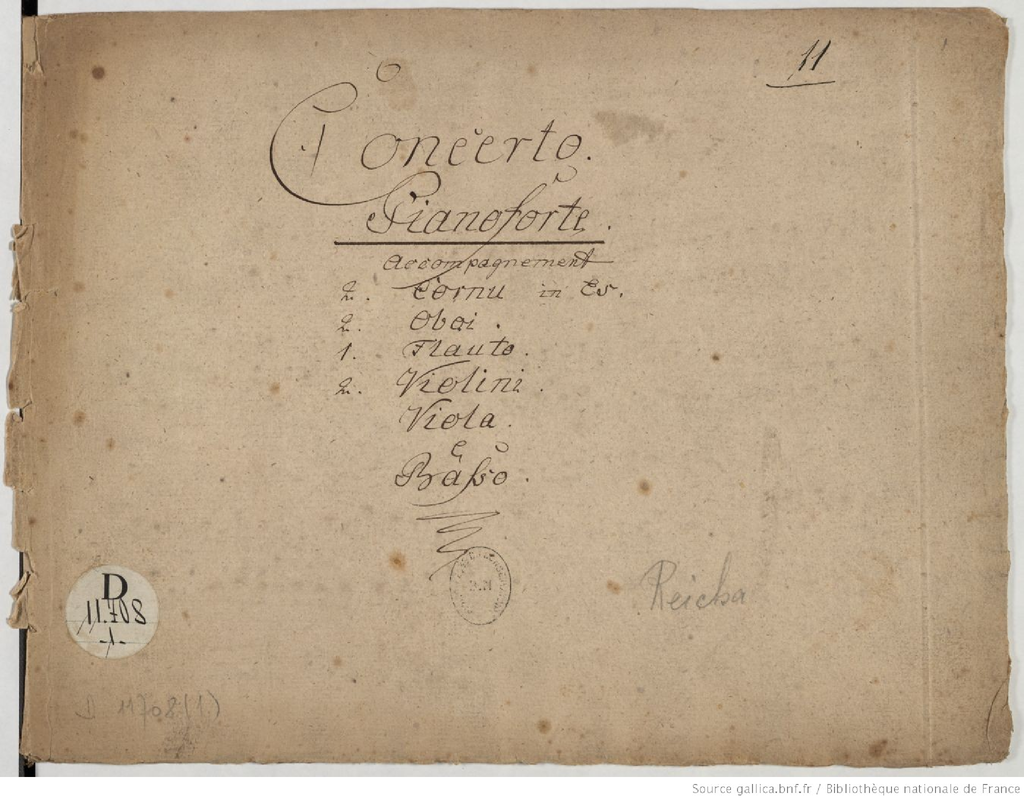 11
Concerto.
Pianoforte.
accompagnement
2. Cornu in Es.
2. Oboi.
1. Flauto.
2. Violini.
Viola.
e
Basso.
Reicha
D
11.708
-1-
D 11708(1)
Source gallica.bnf.fr / Bibliothèque nationale de France